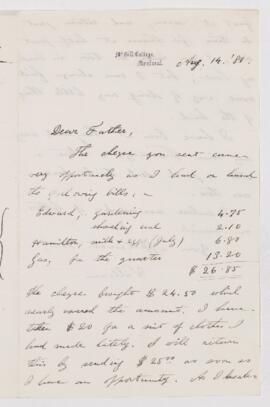 McGill College,
Montreal.
Aug. 14. '80.
Dear Father,
The cheque you sent came
very opportunely as I had on hand
the following bills, -
Edward, gardening 4.75
shoeing and 2.10
Hamilton, milk & eggs (July) 6.80
Gas, for the quarter 13.20
$ 26.85
The cheque brought $ 24.50 which
nearly covered the amount. I have
taken $ 20 for a suit of clothes I
had made lately. I will return
this by sending $ 25.00 as soon as
I have an opportunity. As I